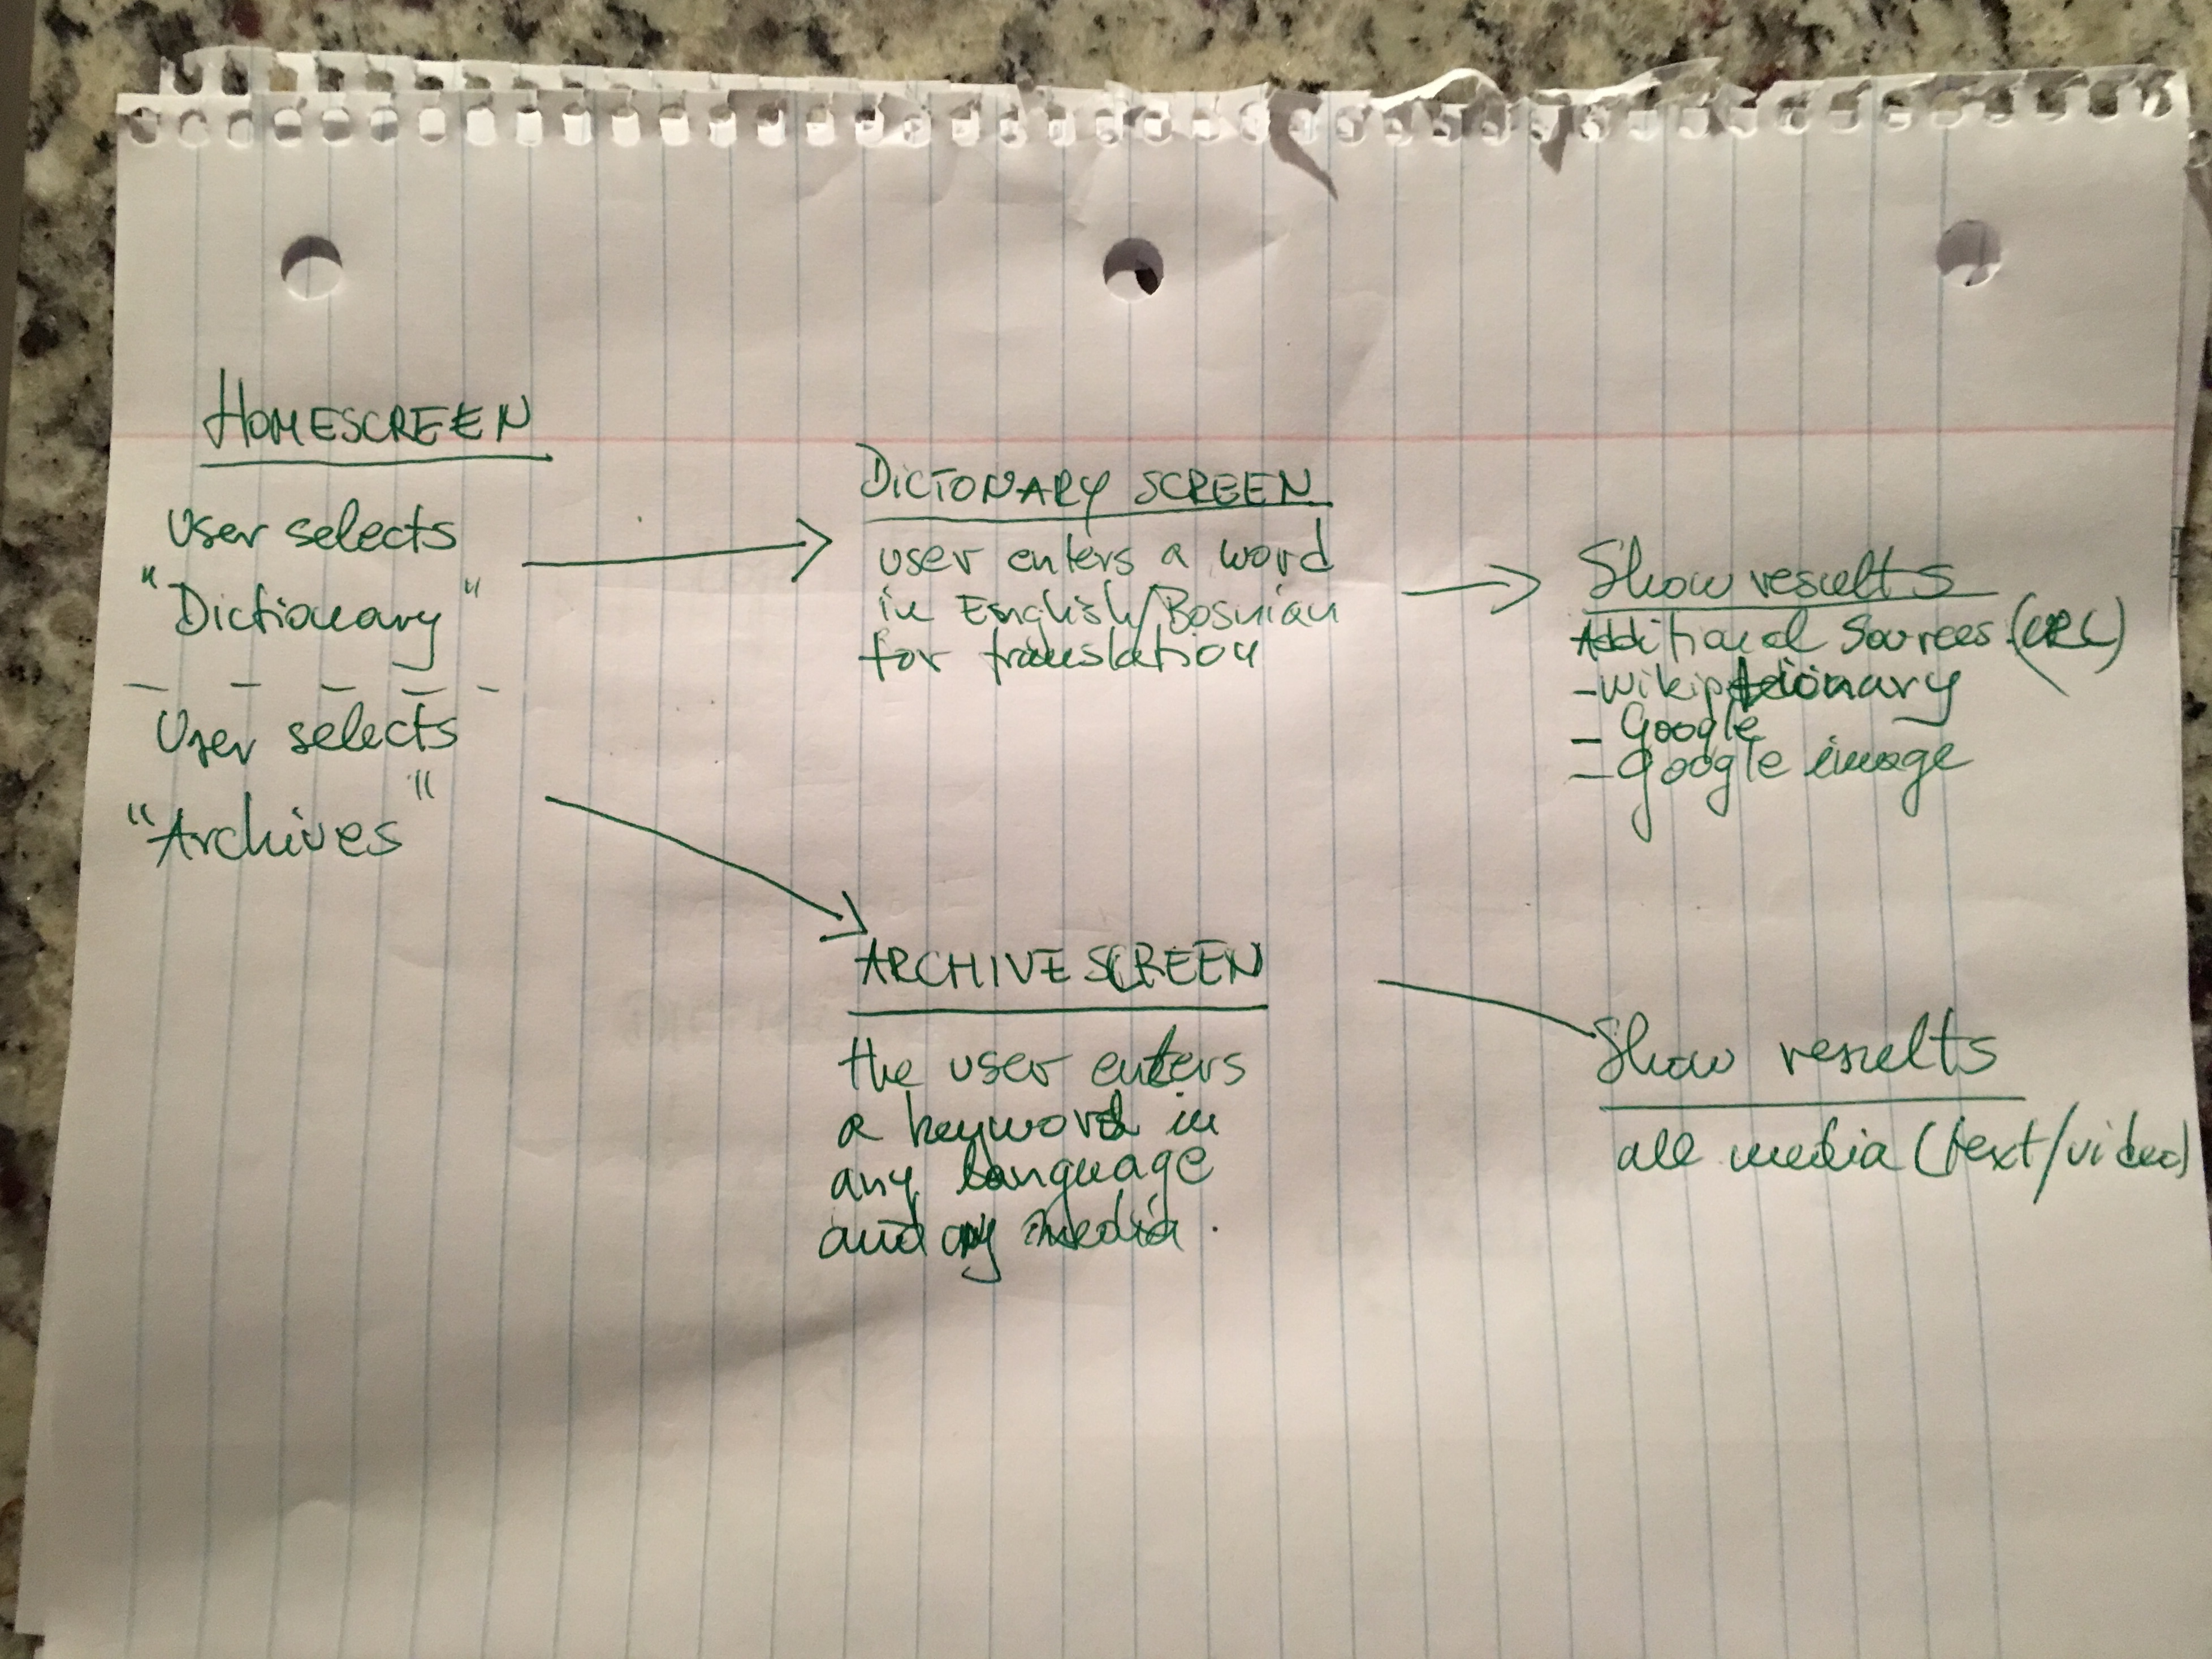 HOMESCREEN
User selects
"Dictionary"
User selects
"Archives"
DICTONARY SCREEN
user enters a word
in English/Bosnian
for translation
Show results
Additional Sources (URL)
- Google
- Google image
ARCHIVE SCREEN
the user enters
a keyword in
any language
and any media.
Show results
all media (text/video)